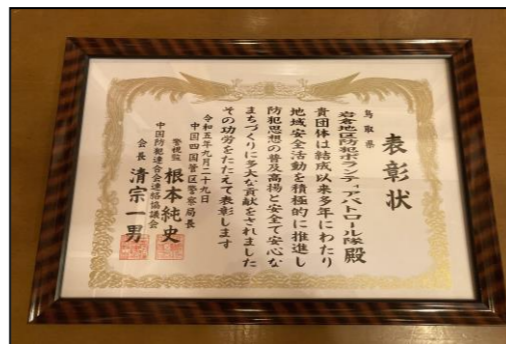 表彰状
鳥取県
岩倉地区防犯ボランティアパトロール隊殿
貴団体は結成以来多年にわたり
地域安全活動を積極的に推進し
防犯思想の普及高揚と安全で安心な
まちづくりに多大な貢献をされました
その功労をたたえて表彰します
令和五年九月二十九日
中国四国管区警察局長
警視監 根本純史
中国防犯連合会連絡協議会
会長 清宗一男